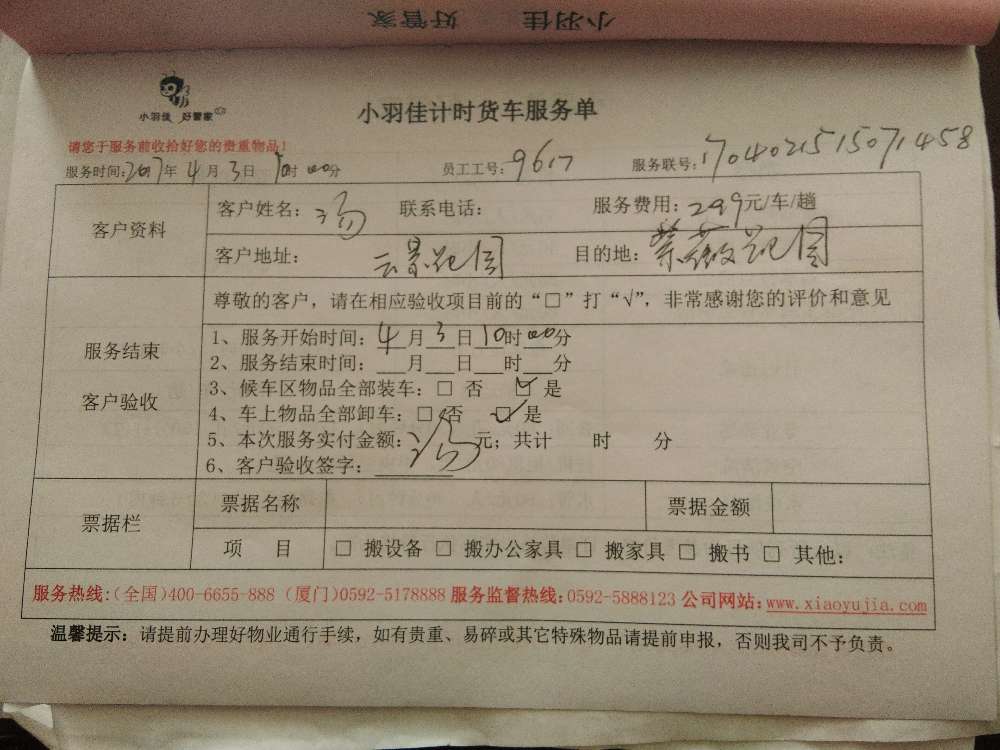 小羽佳 好管家
小羽佳 好管家
小羽佳计时货车服务单
请您于服务前收拾好您的贵重物品！
服务时间：2017年4月3日10时00分 员工工号：9617 服务联号：1704021515071458
客户资料 客户姓名：汤 联系电话： 服务费用：299元/车/趟
客户地址：云景花园 目的地：紫薇花园
尊敬的客户，请在相应验收项目前的“□”打“√”，非常感谢您的评价和意见
服务结束
客户验收
1、服务开始时间：4月3日10时00分
2、服务结束时间：___月___日___时___分
3、候车区物品全部装车：□ 否 ☑ 是
4、车上物品全部卸车：□ 否 ☑ 是
5、本次服务实付金额： 元；共计 时 分
6、客户验收签字：汤
票据栏 票据名称 票据金额
项 目 □ 搬设备 □ 搬办公家具 □ 搬家具 □ 搬书 □ 其他：
服务热线：（全国）400-6655-888（厦门）0592-5178888 服务监督热线：0592-5888123 公司网站：www.xiaoyujia.com
温馨提示：请提前办理好物业通行手续，如有贵重、易碎或其它特殊物品请提前申报，否则我司不予负责。